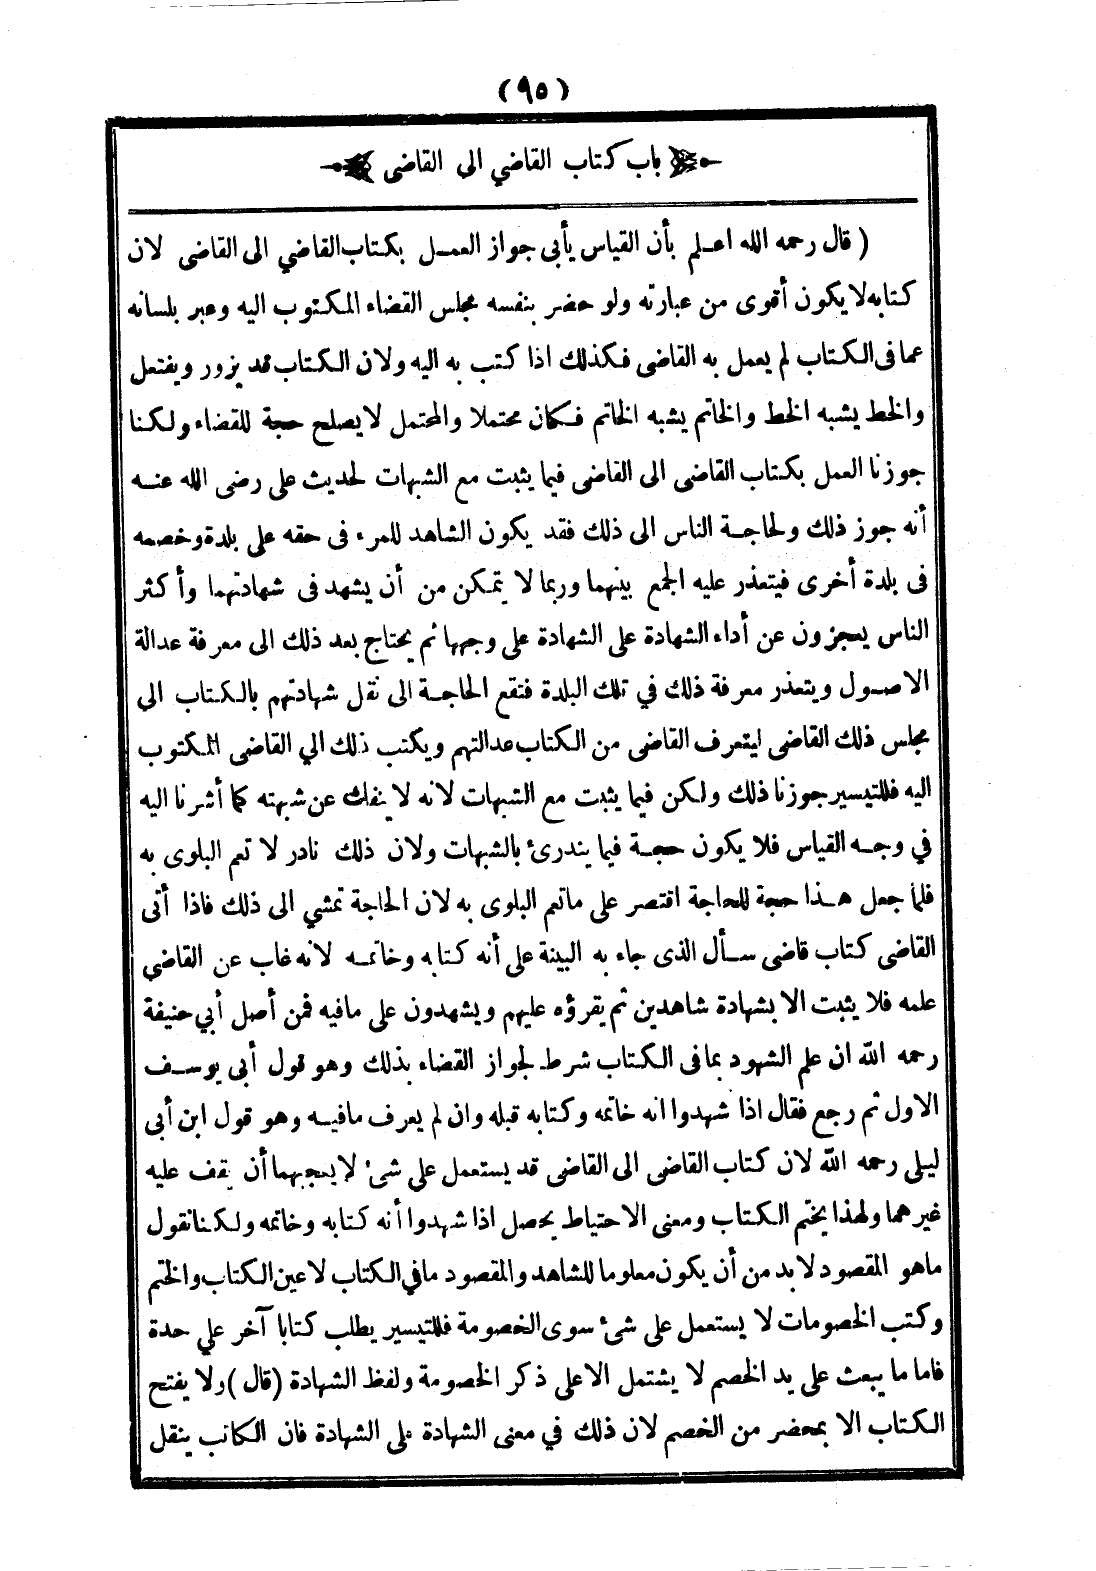 (٩٥)
باب كتاب القاضي الى القاضى
( قال رحمه الله اعلم بأن القياس يأبى جواز العمل بكتاب القاضي الى القاضى لان
كتابه لا يكون أقوى من عبارته ولو حضر بنفسه مجلس القضاء المكتوب اليه وعبر بلسانه
عما فى الكتاب لم يعمل به القاضى فكذلك اذا كتب به اليه ولان الكتاب قد يزور ويفتعل
والخط يشبه الخط والخاتم يشبه الخاتم فكان محتملا والمحتمل لا يصلح حجة للقضاء ولكنا
جوزنا العمل بكتاب القاضى الى القاضى فيما يثبت مع الشبهات لحديث على رضى الله عنه
أنه جوز ذلك ولحاجة الناس الى ذلك فقد يكون الشاهد للمرء فى حقه على بلدة وخصمه
فى بلدة أخرى فيتعذر عليه الجمع بينهما وربما لا يتمكن من أن يشهد فى شهادتهما وأكثر
الناس يعجزون عن أداء الشهادة على الشهادة على وجهها ثم يحتاج بعد ذلك الى معرفة عدالة
الاصول ويتعذر معرفة ذلك في تلك البلدة فتقع الحاجة الى نقل شهادتهم بالكتاب الى
مجلس ذلك القاضى ليتعرف القاضى من الكتاب عدالتهم ويكتب ذلك الي القاضى المكتوب
اليه فللتيسير جوزنا ذلك ولكن فيما يثبت مع الشبهات لانه لا ينفك عن شبهته كما أشرنا اليه
في وجه القياس فلا يكون حجة فيما يندرئ بالشبهات ولان ذلك نادر لا تعم البلوى به
فلما جعل هذا حجة للحاجة اقتصر على ماتعم البلوى به لان الحاجة تمشي الى ذلك فاذا أتى
القاضى كتاب قاضى سأل الذى جاء به البينة على أنه كتابه وخاتمه لانه غاب عن القاضي
علمه فلا يثبت الا بشهادة شاهدين ثم يقرؤه عليهم ويشهدون على مافيه فمن أصل أبي حنيفة
رحمه الله ان علم الشهود بما فى الكتاب شرط لجواز القضاء بذلك وهو قول أبى يوسف
الاول ثم رجع فقال اذا شهدوا انه خاتمه وكتابه قبله وان لم يعرف مافيه وهو قول ابن أبى
ليلى رحمه الله لان كتاب القاضى الى القاضى قد يستعمل على شئ لا يعجبهما أن يقف عليه
غيرهما ولهذا يختم الكتاب ومعنى الاحتياط يحصل اذا شهدوا أنه كتابه وخاتمه ولكنا نقول
ماهو المقصود لابد من أن يكون معلوما للشاهد والمقصود مافي الكتاب لا عين الكتاب والختم
وكتب الخصومات لا يستعمل على شئ سوى الخصومة فللتيسير يطلب كتابا آخر علي حدة
فاما ما يبعث على يد الخصم لا يشتمل الا على ذكر الخصومة ولفظ الشهادة (قال) ولا يفتح
الكتاب الا بمحضر من الخصم لان ذلك في معنى الشهادة على الشهادة فان الكاتب ينقل